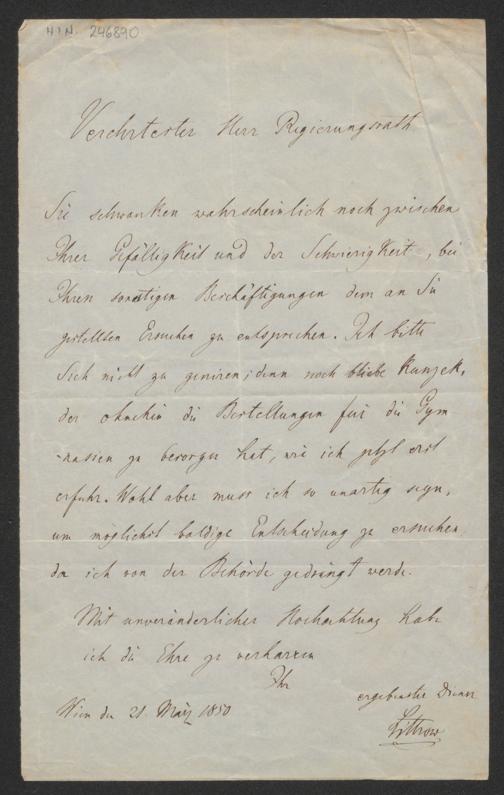 H.I.N. 246890
Verehrtester Herr Regierungsrath
Sie schwanken wahrscheinlich noch zwischen
Ihrer Gefälligkeit und der Schwierigkeit, bei
Ihren sonstigen Beschäftigungen dem an Sie
gestellten Ersuchen zu entsprechen. Ich bitte
Sich nicht zu geniren; denn noch bliebe Kunzek,
der ohnehin die Bestellungen für die Gym
-nasien zu besorgen hat, wie ich jetzt erst
erfuhr. Wohl aber muss ich so unartig seyn,
um möglichst baldige Entscheidung zu ersuchen
da ich von der Behörde gedrängt werde.
Mit unveränderlicher Hochachtung habe
ich die Ehre zu verharren
Ihr
ergebenster Diener
Wien den 21. März 1850
Littrow